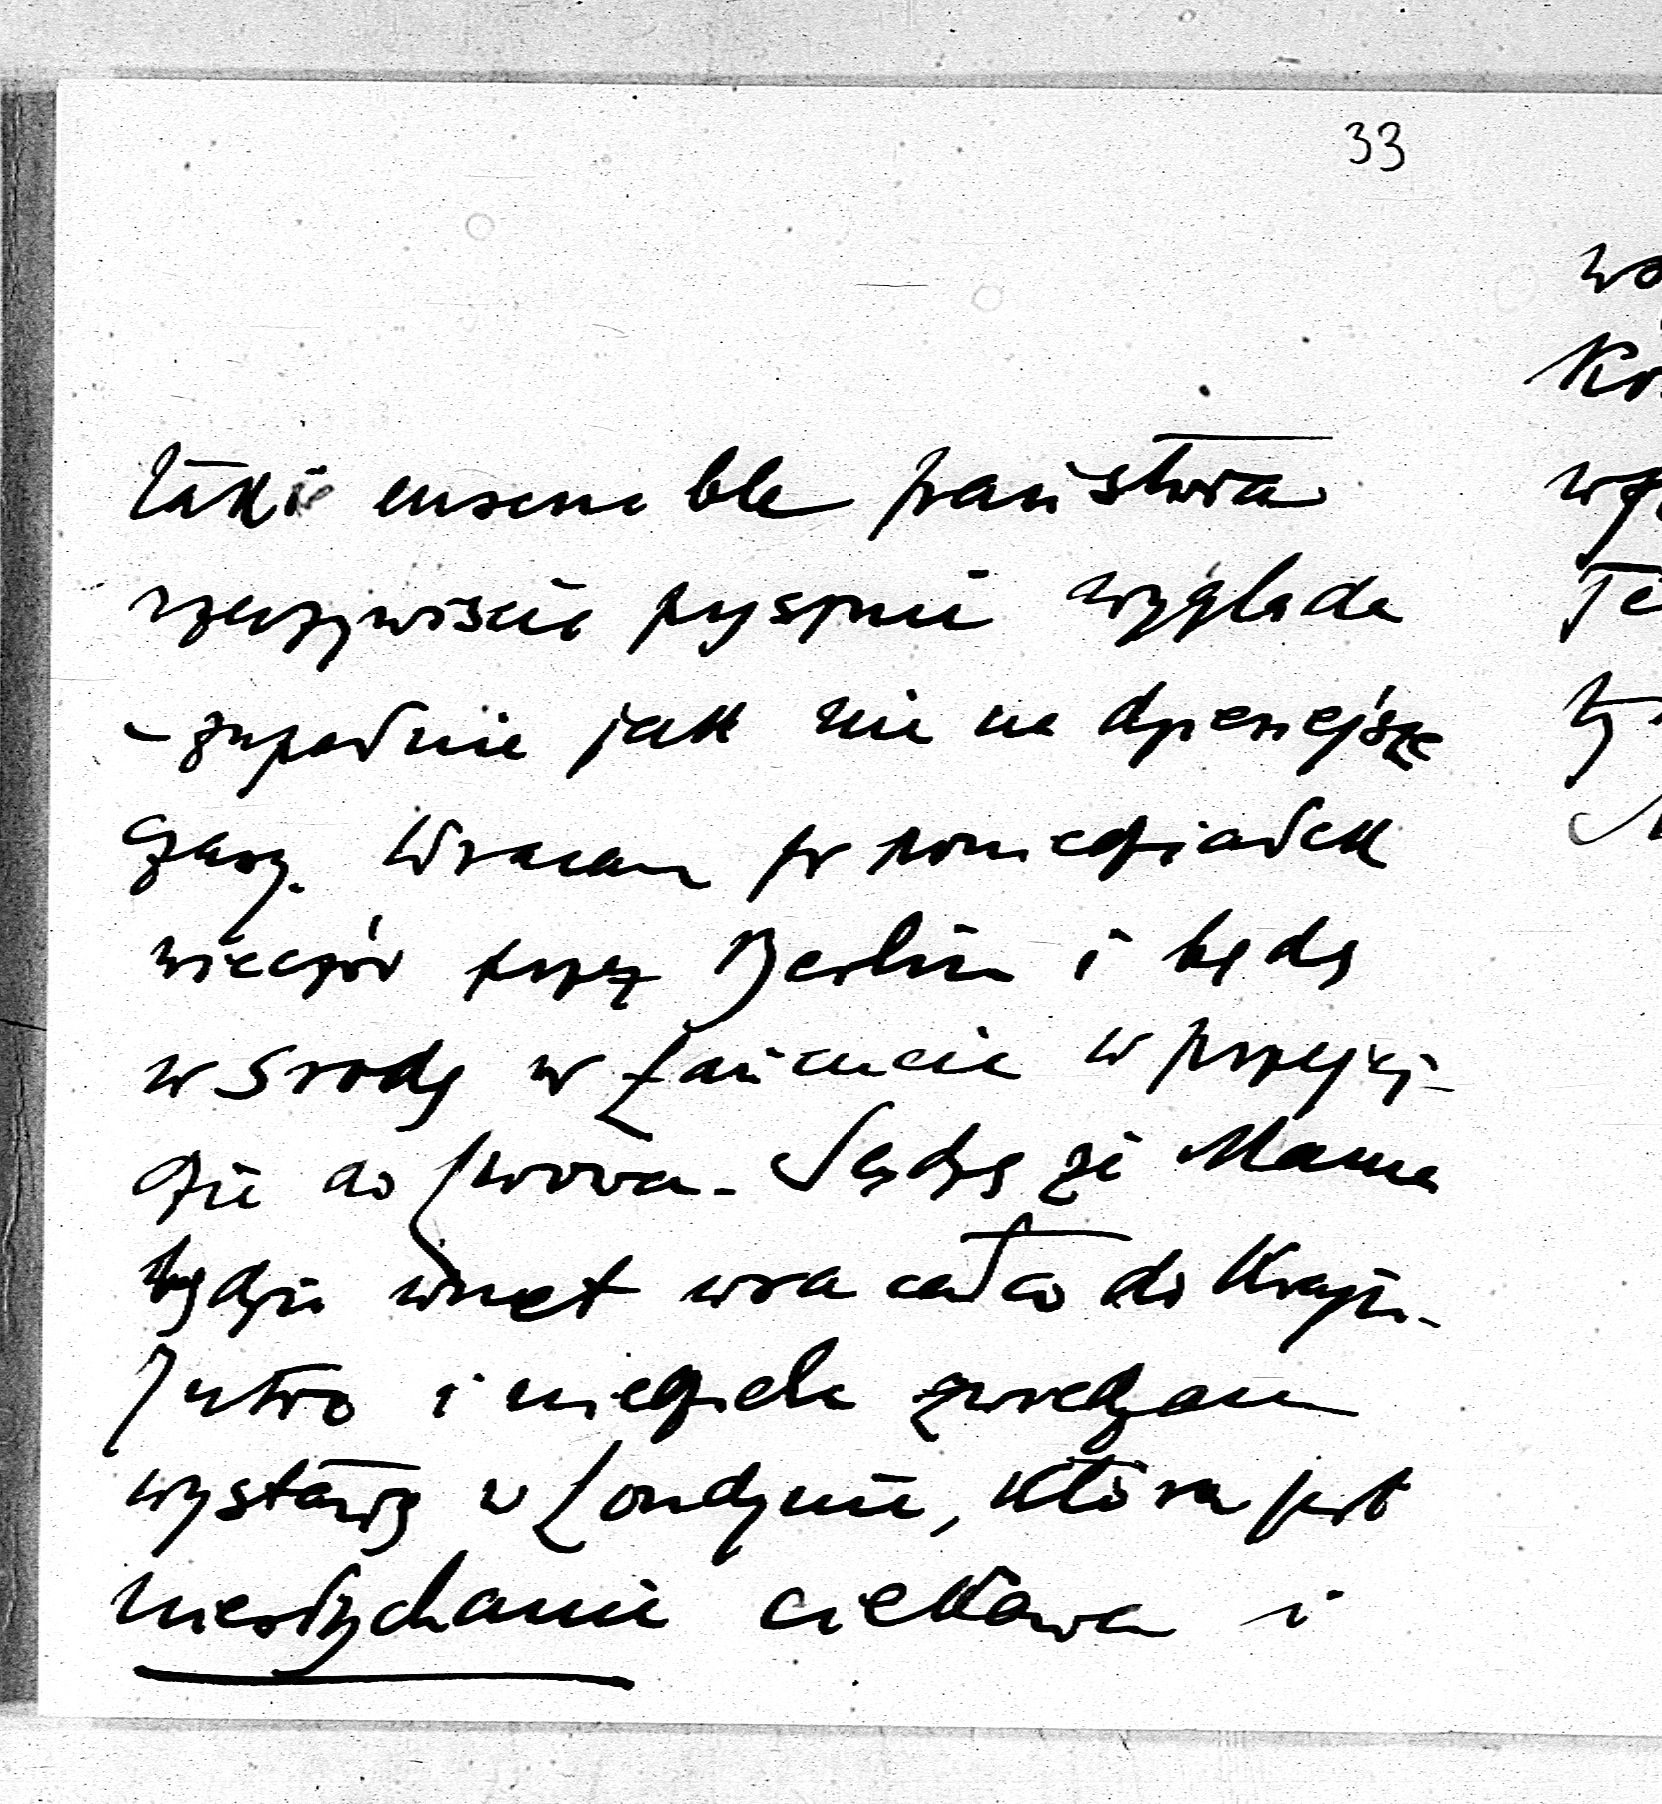 33
takie ensemble państwa
rzeczywiście pysznie wygląda
- zupełnie jak nie na dzisiejsze
czasy. Wracam w poniedziałek
wieczór przez Berlin i będę
w środę w Łańcucie w przejeź-
dzie do Lwowa. Sądzę że Mama
będzie wnet wracała do Kraju.
Jutro i niedziela zwiedzam
wystawę w Londynie, która jest
niesłychanie ciekawa i